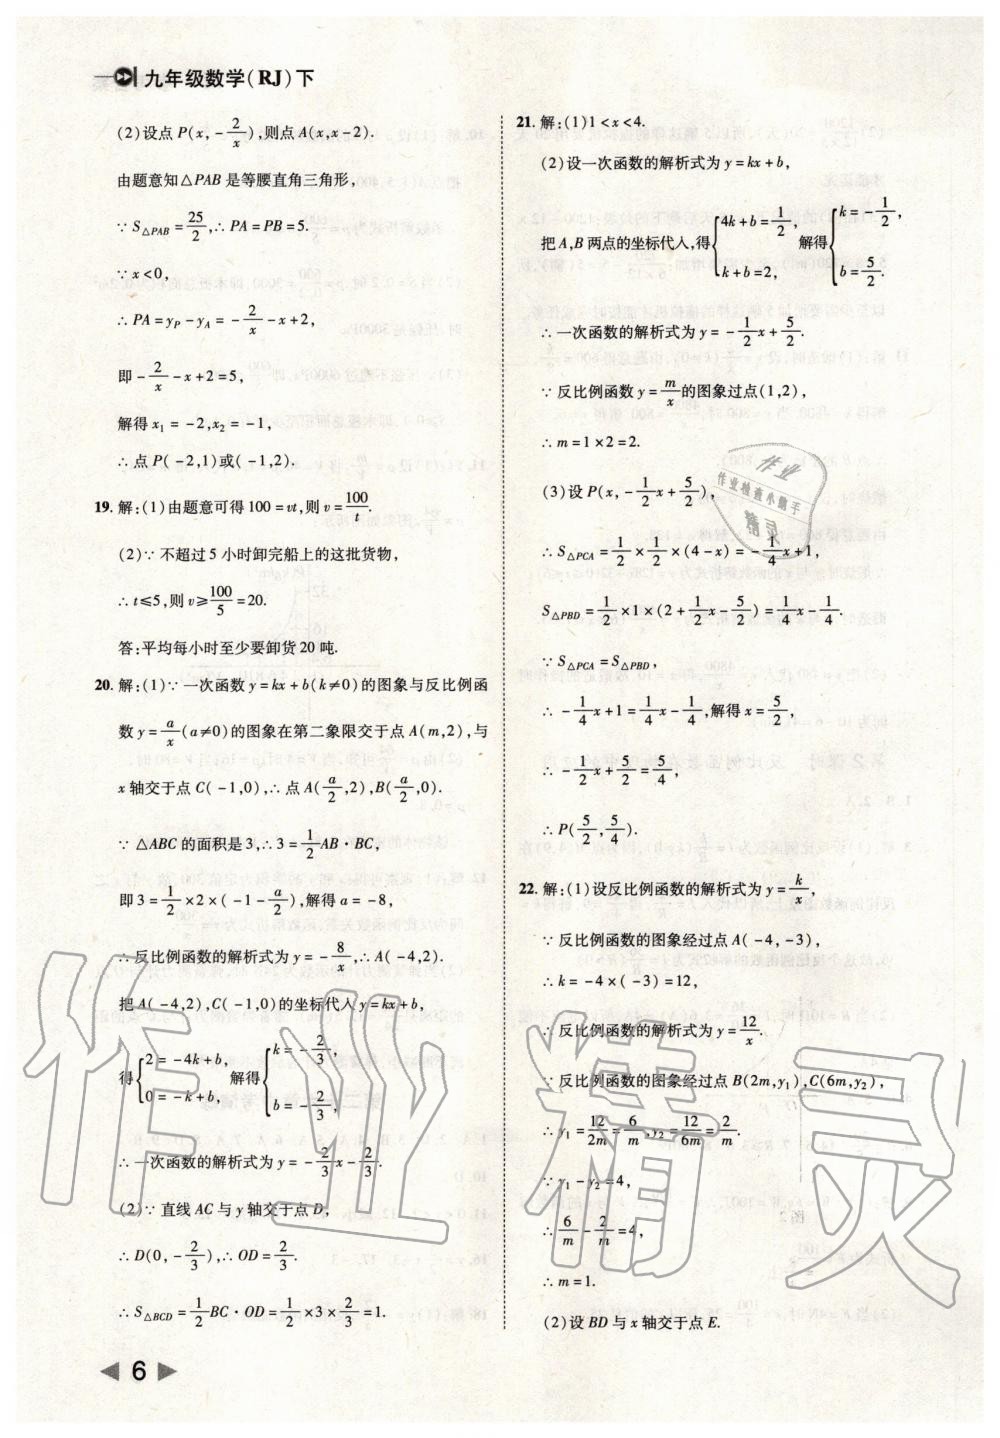 九年级数学(RJ)下
(2)设点 P(x,-2/x),则点 A(x,x-2).
由题意知△PAB 是等腰直角三角形,
∵S△PAB=25/2,∴PA=PB=5.
∵x<0,
∴PA=yP-yA=-2/x-x+2,
即-2/x-x+2=5,
解得 x1=-2,x2=-1,
∴点 P(-2,1)或(-1,2).
19. 解:(1)由题意可得 100=vt,则 v=100/t.
(2)∵不超过 5 小时卸完船上的这批货物,
∴t≤5,则 v≥100/5=20.
答:平均每小时至少要卸货 20 吨.
20. 解:(1)∵一次函数 y=kx+b(k≠0)的图象与反比例函
数 y=a/x(a≠0)的图象在第二象限交于点 A(m,2),与
x 轴交于点 C(-1,0),∴点 A(a/2,2),B(a/2,0).
∵△ABC 的面积是 3,∴3=1/2AB·BC,
即 3=1/2×2×(-1-a/2),解得 a=-8,
∴反比例函数的解析式为 y=-8/x,∴A(-4,2).
把 A(-4,2),C(-1,0)的坐标代入 y=kx+b,
得{2=-4k+b, 0=-k+b, 解得{k=-2/3, b=-2/3,
∴一次函数的解析式为 y=-2/3x-2/3.
(2)∵直线 AC 与 y 轴交于点 D,
∴D(0,-2/3),∴OD=2/3.
∴S△BCD=1/2BC·OD=1/2×3×2/3=1.
21. 解:(1)1<x<4.
(2)设一次函数的解析式为 y=kx+b,
把 A,B 两点的坐标代入,得{4k+b=1/2, k+b=2, 解得{k=-1/2, b=5/2.
∴一次函数的解析式为 y=-1/2x+5/2.
∵反比例函数 y=m/x的图象过点(1,2),
∴m=1×2=2.
(3)设 P(x,-1/2x+5/2),
∴S△PCA=1/2×1/2×(4-x)=-1/4x+1,
S△PBD=1/2×1×(2+1/2x-5/2)=1/4x-1/4.
∵S△PCA=S△PBD,
∴-1/4x+1=1/4x-1/4,解得 x=5/2,
∴-1/2x+5/2=5/4.
∴P(5/2,5/4).
22. 解:(1)设反比例函数的解析式为 y=k/x,
∵反比例函数的图象经过点 A(-4,-3),
∴k=-4×(-3)=12,
∴反比例函数的解析式为 y=12/x.
∵反比例函数的图象经过点 B(2m,y1),C(6m,y2),
∴y1=12/2m=6/m,y2=12/6m=2/m.
∵y1-y2=4,
∴6/m-2/m=4,
∴m=1.
(2)设 BD 与 x 轴交于点 E.
6
作业
作业检查小助手
精灵
作业精灵